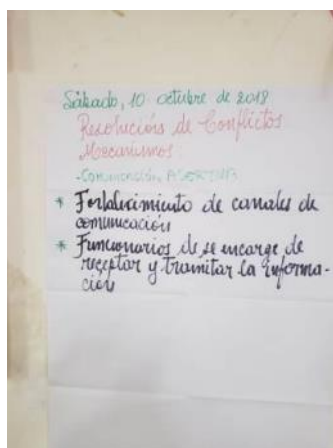 Sábado, 10 octubre de 2018
Resolución de Conflictos
Mecanismos
- Comunicación ASERTIVA
* Fortalecimiento de canales de
comunicación
* Funcionarios de se encarge de
receptar y tramitar la informa-
ción